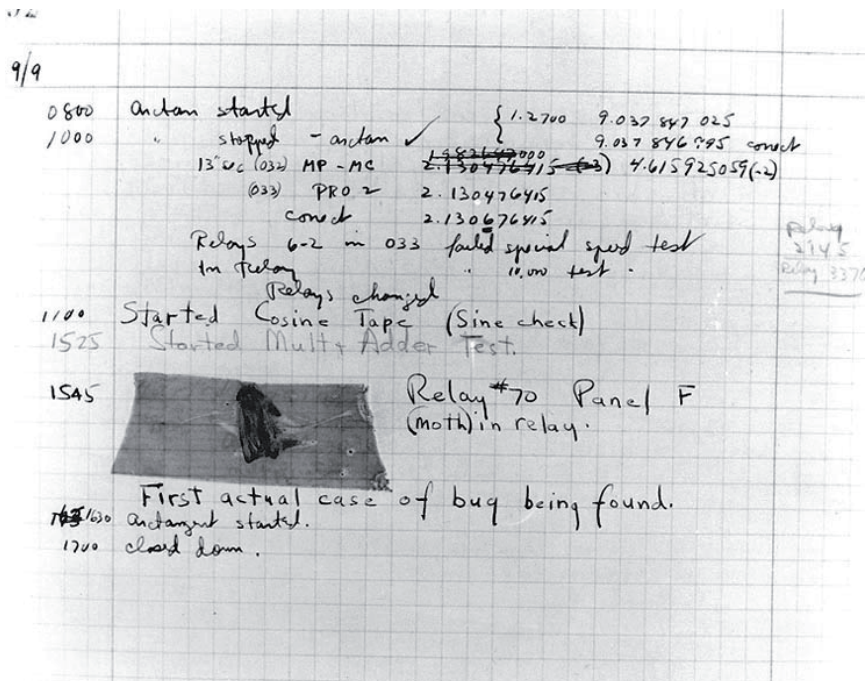 9/9
0800 arctan started { 1.2700 9.037 847 025
1000 " stopped - arctan ✓ 9.037 846 995 conect
13" sec (032) MP - MC 2.130476415 (-3) 4.615925059(-2)
(033) PRO 2 2.130476415
conect 2.130676415
Relays 6-2 in 033 failed special speed test
In Relay " 10,000 test .
Relays changed
Relay
2145
Relay 3370
1100 Started Cosine Tape (Sine check)
1525 Started Mult + Adder Test.
1545 Relay #70 Panel F
(moth) in relay.
First actual case of bug being found.
1630 arctangent started.
1700 closed down .